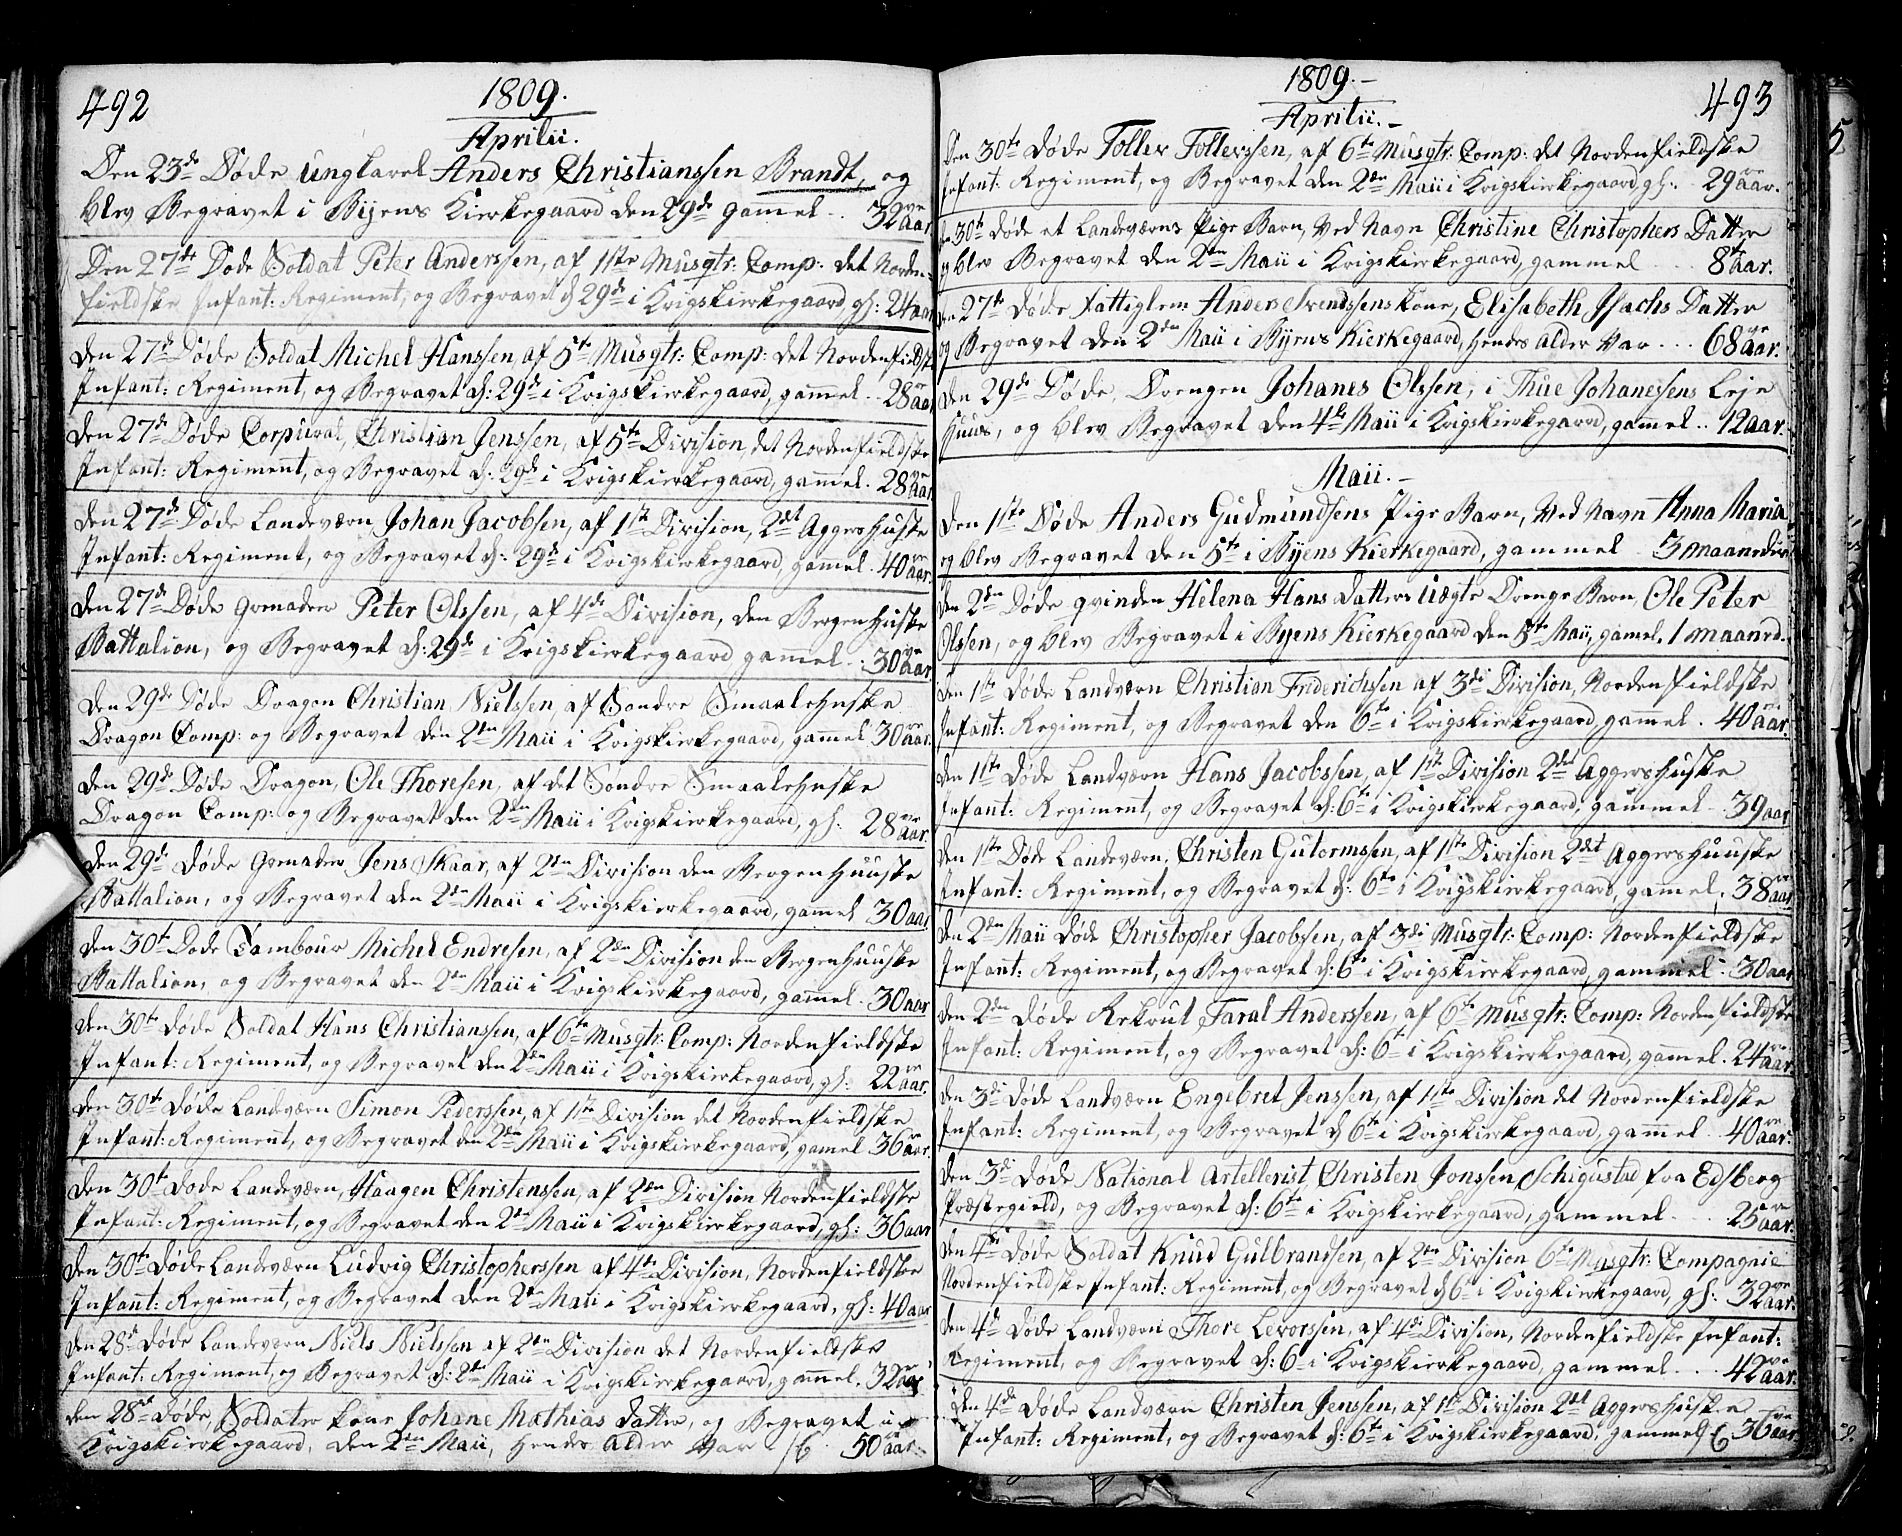 492
1809.
Aprilii.
Den 23de Døde Ungkarel Anders Christianssen Brandt, og
blev Begravet i Byens Kierkegaard den 29de gam̅el .. 32 aar
Den 27de Døde Soldat Peter Anderssen, af 11te Musqtr: Comp: det Norden-
fieldske Infant: Regiment, og Begravet d: 29de i Krigskierkegaard, gl: 24 aar
Den 27de Døde Soldat Michel Hanssen af 5te Musqtr: Comp: det Nordenfieldske
Infant: Regiment, og Begravet d: 29de i Krigskierkegaard, gam̅el .. 28 aar
Den 27de Døde Corpural, Christian Jenssen, af 5te Division, det Nordenfieldske
Infant: Regiment, og Begravet d: 29de i Krigskierkegaard, gam̅el . 28 aar
Den 27de Døde Landeværn, Johan Jacobsen, af 1ste Division, 2det Aggershuske
Infant: Regiment, og Begravet d: 29de i Krigskierkegaard, gam̅el . 40 aar.
Den 27de Døde Grenader Peter Olssen, af 4de Division, den Bergenhuske
Battalion, og Begravet d: 29de i Krigskierkegaard gam̅el .. 30 aar
Den 29de Døde Dragon Christian Nielssen, af Søndre Smaalehnske
Dragon Comp: og Begravet den 2den Maii i Krigskierkegaard, gam̅el 30 aar.
Den 29de Døde Dragon, Ole Thoresen, af det Søndre Smaalehnske
Dragon Comp: og Begravet den 2den Maii i Krigskierkegaard, gl: 28 aar.
Den 29de Døde Grenader Jens Skaar, af 2den Division den Bergenhuuske
Battalion, og Begravet den 2den Maii i Krigskierkegaard, gam̅el 30 aar
Den 30te Døde Tambour Michel Endresen, af 2den Division den Bergenhuuske
Battalion, og Begravet den 2den Maii i Krigskierkegaard, gam̅el . 30 aar
Den 30te Døde Soldat Hans Christianssen, af 6te Musqtr: Comp: Nordenfieldske
Infant: Regiment, og Begravet den 2den Maii i Krigskierkegaard, gl: 22 aar.
Den 30te Døde Landværn Simon Pederssen, af 1ste Division det Nordenfieldske
Infant: Regiment, og Begravet den 2den Maii i Krigskierkegaard, gam̅el 36 aar.
Den 30te Døde Landeværn, Haagen Christenssen, af 2den Division Nordenfieldske
Infant: Regiment, og Begravet den 2den Maii i Krigskierkegaard, gl: 36 aar
Den 30te Døde Landeværn Ludvig Christopherssen af 4de Division, Nordenfieldske
Infant: Regiment, og Begravet den 2den Maii i Krigskierkegaard, gl: 40 aar
Den 28de Døde Landeværn Niels Nielssen af 2den Division det Nordenfieldske
Infant: Regiment, og Begravet d: 2den Maii i Krigskierkegaard, gam̅el . 32 aar
Den 28de Døde, Soldater kone Johane Mathias Datter, og Begravet i
Krigskierkegaard, den 2den Maii, hendes alder var 50 aar.
493
1809.-
Aprilii.-
Den 30te Døde Toller Tollerssen, af 6te Musqtr: Comp: det Nordenfieldske
Infant: Regiment, og Begravet den 2den Maii i Krigskierkegaard, gl: .. 29 aar.
Den 30te Døde et Landeværns Pige Barn, Ved Navn Christine Christophers Datter
og blev Begravet den 2den Maii i Krigskierkegaard, gammel .... 8te aar.
Den 27de Døde Fattiglem Anders Svendssens kone, Elisabeth Isachs Datter
og Begravet den 2den Maii i Byens Kierkegaard, hendes alder Var ... 68 aar.
Den 29de Døde, Drengen Johanes Olssen, i Thue Johanessens Leje
Huus, og blev Begravet den 4de Maii i Krigskierkegaard, gam̅el .. 12 aar.
Maii.-
Den 1ste Døde Anders Gudmundsens Pige Barn, Ved Navn Anna Maria
og blev Begravet den 5te i Byens Kierkegaard, gammel .. 3 maaneder
Den 2den Døde qvinden Helena Hans Datters Uægte Drenge Barn, Ole Peter
Olssen, og blev Begravet i Byens Kierkegaard den 5te Maii, gam̅el, 1 maaned.
Den 1ste Døde Landværn Christian Friderichssen af 3die Division, Nordenfieldske
Infant: Regiment, og Begravet den 6te i Krigskierkegaard, gam̅el . 40 aar.
Den 1ste Døde Landværn Hans Jacobssen, af 1ste Division 2det Aggershuske
Infant: Regiment, og Begravet d: 6te i Krigskierkegaard, gammel .. 39 aar
Den 1ste Døde Landeværn, Christen Gutormssen, af 1ste Division 2det Aggershuuske
Infant: Regiment, og Begravet d: 6te i Krigskierkegaard, gam̅el , 38 aar
Den 2den Maii Døde Christopher Jacobssen, af 3die Musqtr: Comp: Nordenfieldske
Infant: Regiment, og Begravet d: 6te i Krigskierkegaard, gammel .. 30 aar
Den 2den Døde Rekrut Taral Anderssen, af 6te Musqtr: Comp: Nordenfieldske
Infant: Regiment, og Begravet d: 6te i Krigskierkegaard, gam̅el . 24 aar
Den 3die Døde Landværn Engebret Jenssen, af 1ste Division det Nordenfieldske
Infant: Regiment, og Begravet d 6te i Krigskierkegaard, gam̅el .. 40 aar.
Den 3die Døde National Artellerist, Christen Jonssen Schigustad fra Edsberg
Præstegield, og Begravet d: 6te i Krigskierkegaard, gammel ... 25 aar.
Den 4de Døde Soldat Knud Gulbrandsen, af 2den Division 6te Musqtr: Compagnie
Nordenfieldske Infant: Regiment, og Begravet d 6te i Krigskierkegaard, gl: . 32 aar.
Den 4de Døde Landværn Thore Levorssen, af 4de Division, Nordenfieldske Infant:
Regiment, og Begravet d: 6te i Krigskierkegaard, gammel ... 42 aar.
Den 4de Døde Landværn Christen Jenssen, af 1ste Division 2det Aggershuske
Infant: Regiment, og Begravet d: 6te i Krigskierkegaard, gammel 36 aar